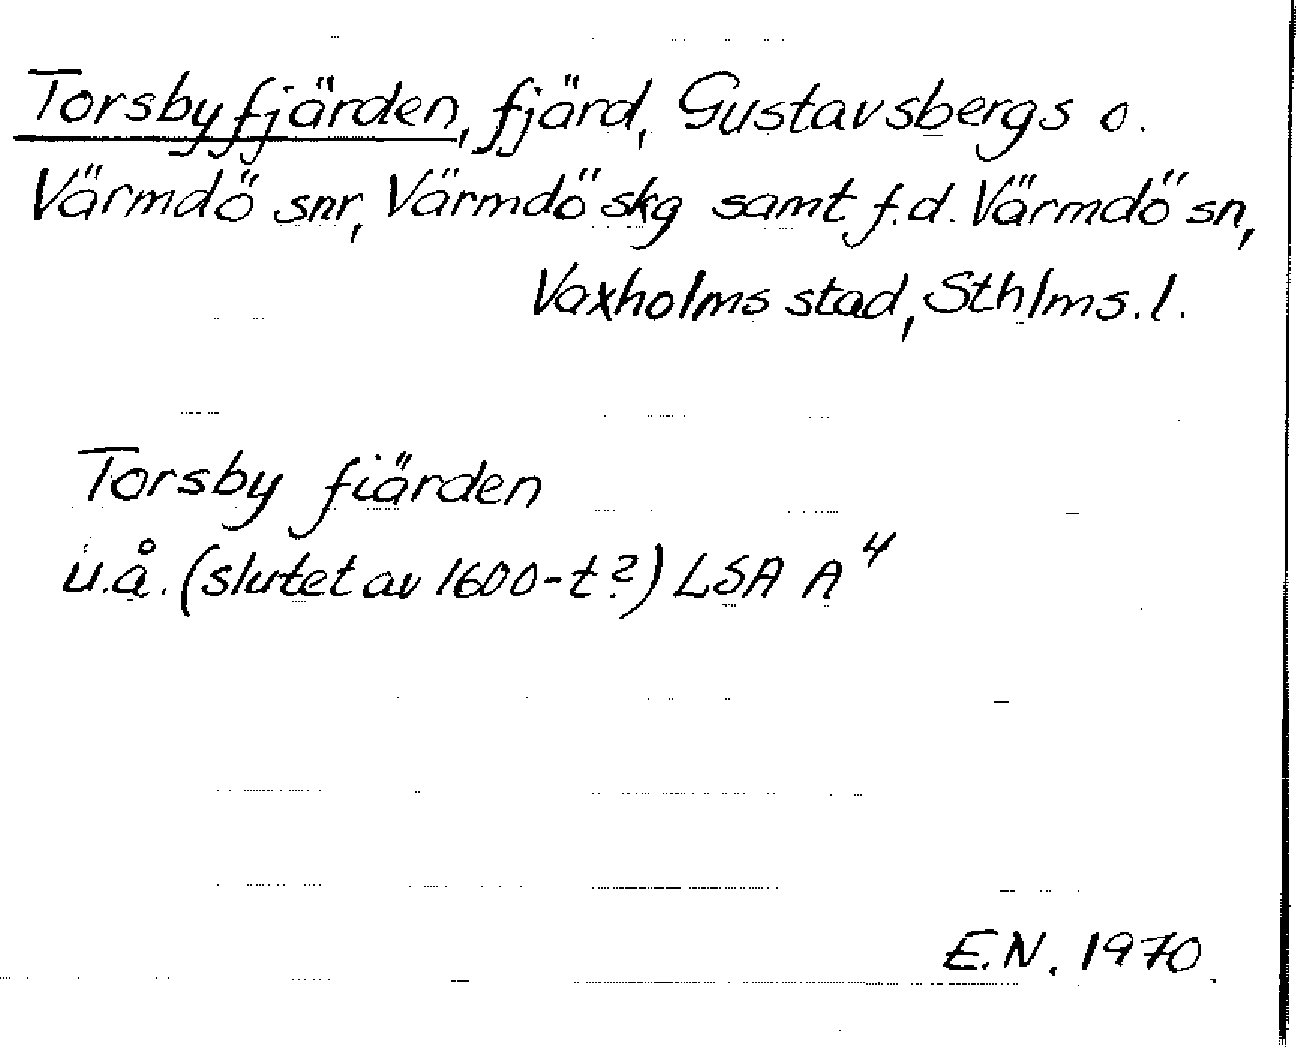 Torsbyfjärden, fjärd, Gustavsbergs o.
Värmdö snr, Värmdö skg samt f.d. Värmdö sn,
Vaxholms stad, Sthlms.l.
Torsby fiärden
u.å. (slutet av 1600-t?) LSA A⁴
E.N. 1970.